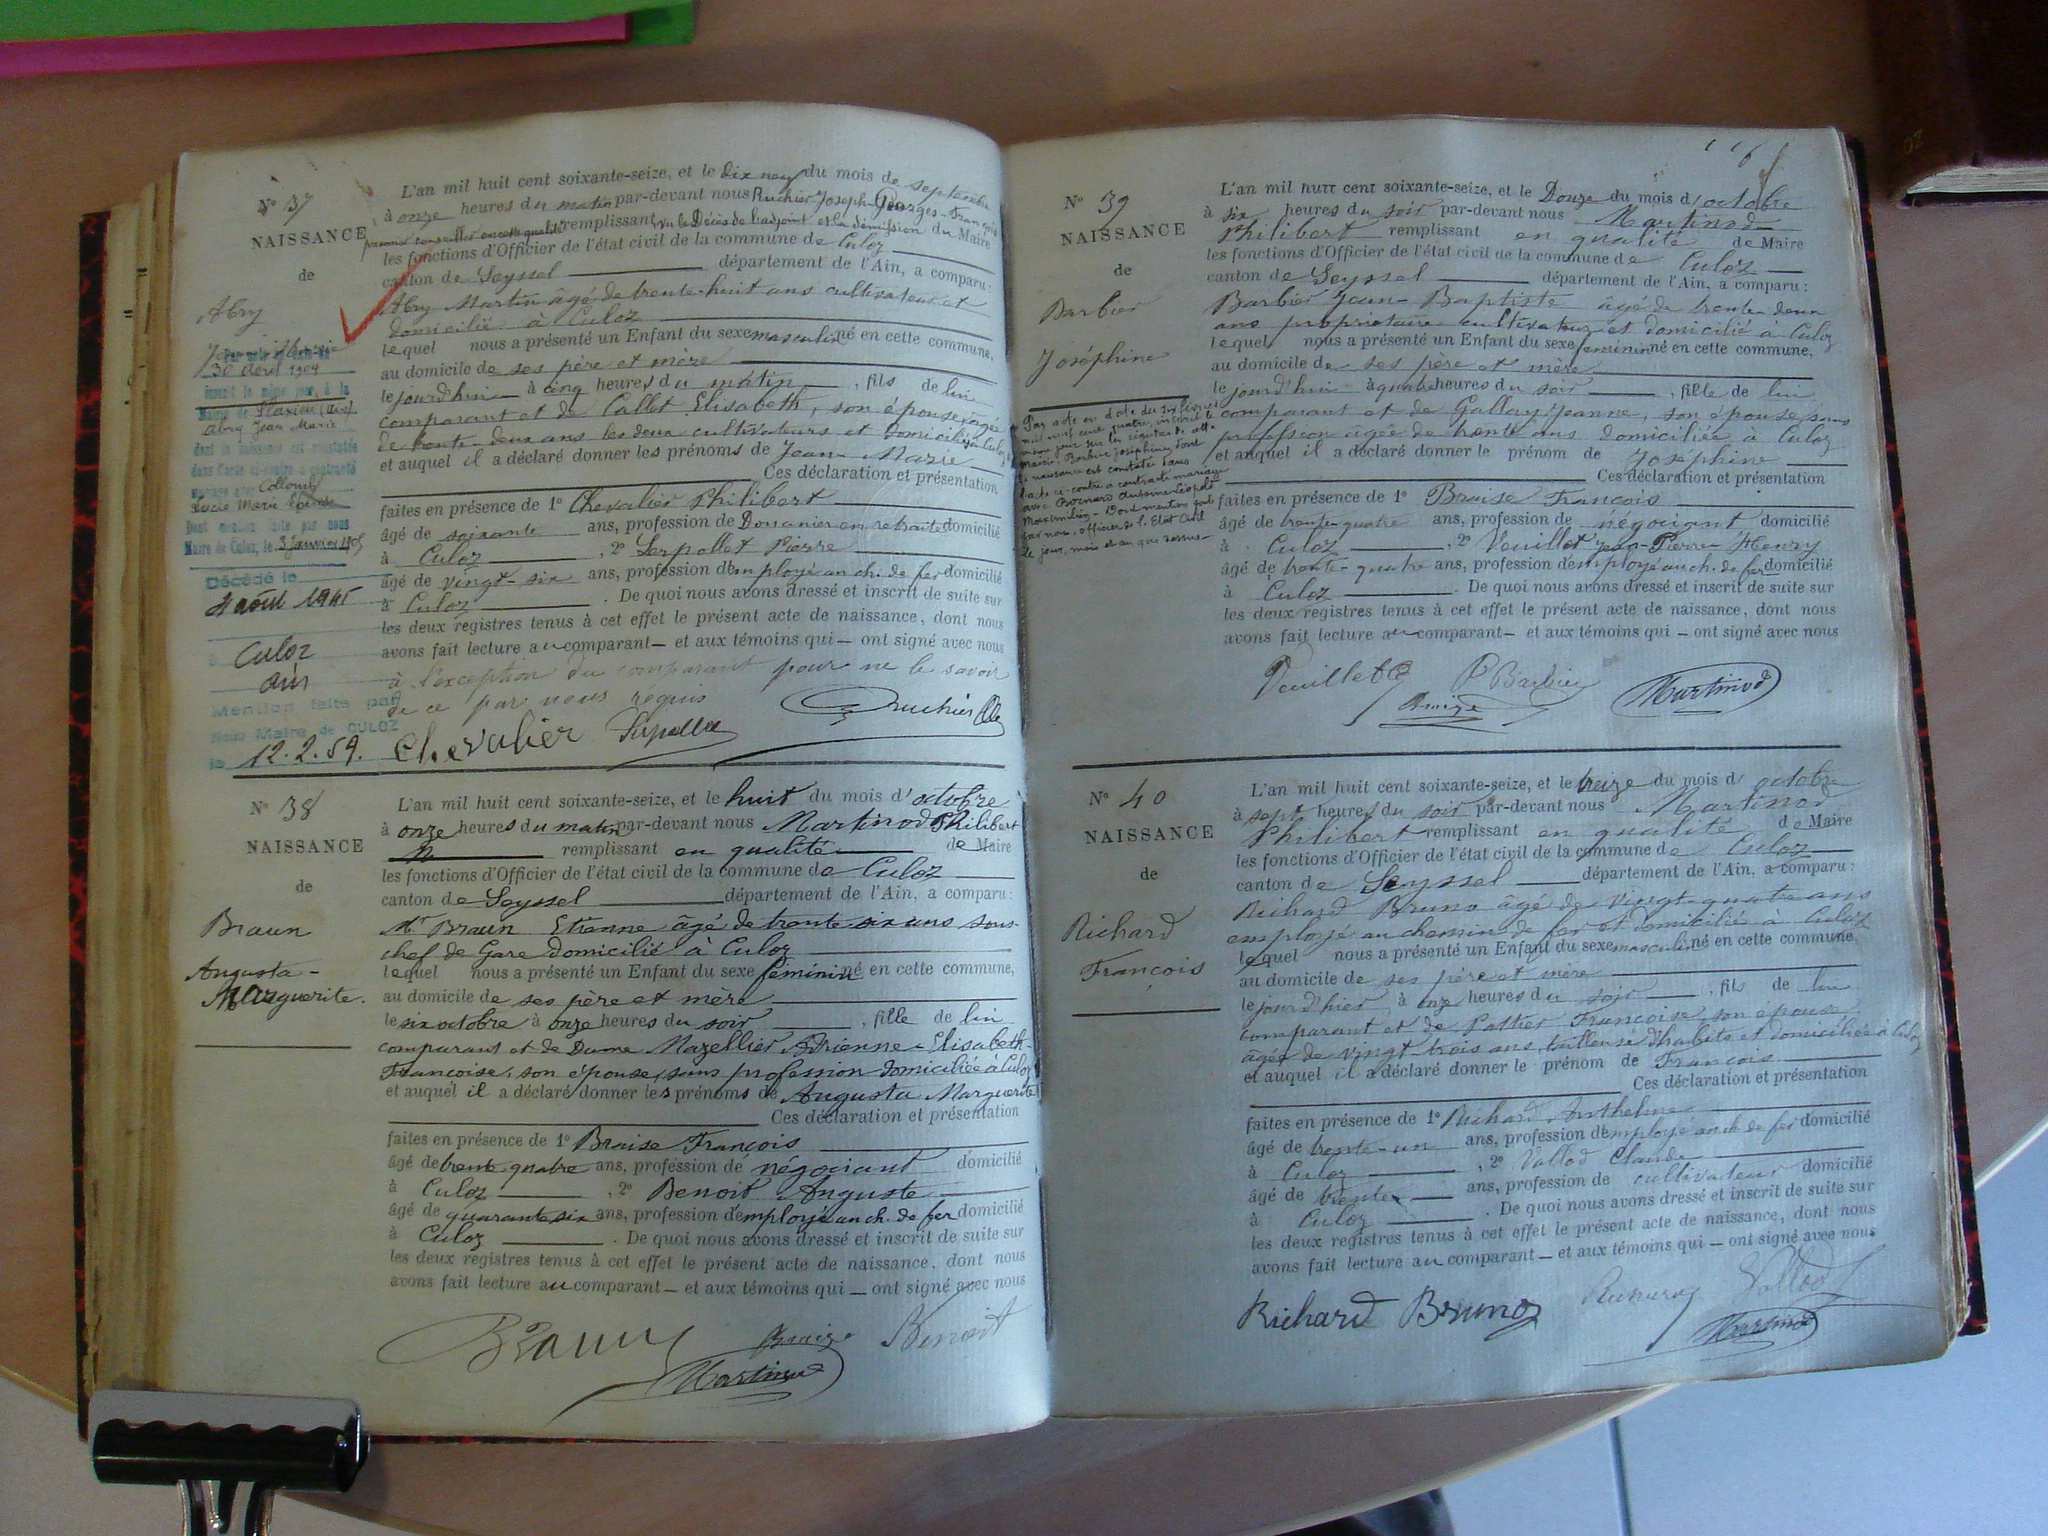 N° 37
NAISSANCE
de
Abry
Jean-Marie
30 avril 1904
inscrit le même jour, à la
Mairie de Flaxieu (Ain)
Abry Jean Marie
dont la naissance est constatée
dans l'acte ci-contre a contracté
mariage avec Collomb
Lucie Marie
Dont mention faite par nous
Maire de Culoz, le 3 janvier 1905
Décédé le
4 août 1945
à Culoz
Ain
Mention faite par
Nous Maire de CULOZ
le 12.2.59.
L'an mil huit cent soixante-seize, et le dix neuf du mois de septembre
à onze heures du matin par-devant nous Ruchier Joseph-Georges-François
premier conseiller en cette qualité remplissant vu le Décès de l'adjoint et la démission du Maire
les fonctions d'Officier de l'état civil de la commune de Culoz
canton de Seyssel département de l'Ain, a comparu:
Abry Martin âgé de trente-huit ans cultivateur et
domicilié à Culoz
lequel nous a présenté un Enfant du sexe masculin né en cette commune,
au domicile de ses père et mère
le jourd'hui à cinq heures du matin, fils de lui
comparant et de Callet Elisabeth, son épouse, âgée
de trente-deux ans les deux cultivateurs et domiciliés à Culoz
et auquel il a déclaré donner les prénoms de Jean-Marie
Ces déclaration et présentation
faites en présence de 1° Chevalier Philibert
âgé de soixante ans, profession de Douanier en retraite domicilié
à Culoz, 2° Serpollet Pierre
âgé de vingt-six ans, profession d'employé au ch. de fer domicilié
à Culoz. De quoi nous avons dressé et inscrit de suite sur
les deux registres tenus à cet effet le présent acte de naissance, dont nous
avons fait lecture au comparant — et aux témoins qui — ont signé avec nous
à l'exception du comparant pour ne le savoir
de ce par nous requis
Chevalier Serpollet Ruchier
N° 38
NAISSANCE
de
Braun
Augusta-
Marguerite.
L'an mil huit cent soixante-seize, et le huit du mois d'octobre
à onze heures du matin par-devant nous Martinod Philibert
remplissant en qualité de Maire
les fonctions d'Officier de l'état civil de la commune de Culoz
canton de Seyssel département de l'Ain, a comparu:
Mr Braun Etienne âgé de trente-six ans sous-
chef de Gare domicilié à Culoz
lequel nous a présenté un Enfant du sexe féminin né en cette commune,
au domicile de ses père et mère
le six octobre à onze heures du soir, fille de lui
comparant et de Dame Mazellier Adrienne-Elisabeth-
Françoise, son épouse, sans profession domiciliée à Culoz
et auquel il a déclaré donner les prénoms de Augusta Marguerite
Ces déclaration et présentation
faites en présence de 1° Braise François
âgé de trente-quatre ans, profession de négociant domicilié
à Culoz, 2° Benoit Auguste
âgé de quarante six ans, profession d'employé au ch. de fer domicilié
à Culoz. De quoi nous avons dressé et inscrit de suite sur
les deux registres tenus à cet effet le présent acte de naissance, dont nous
avons fait lecture au comparant — et aux témoins qui — ont signé avec nous
Braun Braise Benoit
Martinod
N° 39
NAISSANCE
de
Barbier
Joséphine
Par acte en date du six février
mil neuf cent quatre, inscrit le
même jour sur les registres de cette
mairie, Barbier Joséphine, dont
la naissance est constatée dans
l'acte ci-contre a contracté mariage
avec Antoine Léopold
Maximilien - Dont mention par
par nous, officier de l'Etat Civil
le jour, mois et an que dessus
L'an mil huit cent soixante-seize, et le Douze du mois d'octobre
à six heures du soir par-devant nous Martinod
Philibert remplissant en qualité de Maire
les fonctions d'Officier de l'état civil de la commune de Culoz
canton de Seyssel département de l'Ain, a comparu:
Barbier Jean-Baptiste âgé de trente-deux
ans propriétaire cultivateur et domicilié à Culoz
lequel nous a présenté un Enfant du sexe féminin né en cette commune,
au domicile de ses père et mère
le jourd'hui à quatre heures du soir, fille de lui
comparant et de Gallay Jeanne, son épouse, sans
profession âgée de trente ans domiciliée à Culoz
et auquel il a déclaré donner le prénom de Joséphine
Ces déclaration et présentation
faites en présence de 1° Braise François
âgé de trente-quatre ans, profession de négociant domicilié
à Culoz, 2° Veuillet Jean-Pierre Henry
âgé de trente-quatre ans, profession d'employé au ch. de fer domicilié
à Culoz. De quoi nous avons dressé et inscrit de suite sur
les deux registres tenus à cet effet le présent acte de naissance, dont nous
avons fait lecture au comparant — et aux témoins qui — ont signé avec nous
Veuillet Barbier
Braise Martinod
N° 40
NAISSANCE
de
Richard
François
L'an mil huit cent soixante-seize, et le treize du mois d'octobre
à sept heures du soir par-devant nous Martinod
Philibert remplissant en qualité de Maire
les fonctions d'Officier de l'état civil de la commune de Culoz
canton de Seyssel département de l'Ain, a comparu:
Richard Bruno âgé de vingt-quatre ans
employé au chemin de fer et domicilié à Culoz
lequel nous a présenté un Enfant du sexe masculin né en cette commune,
au domicile de ses père et mère
le jourd'hier à onze heures du soir, fils de lui
comparant et de Pothier Françoise, son épouse,
âgée de vingt-trois ans, tailleuse d'habits et domiciliée à Culoz
et auquel il a déclaré donner le prénom de François
Ces déclaration et présentation
faites en présence de 1° Richard Anthelme
âgé de trente-un ans, profession d'employé au ch. de fer domicilié
à Culoz, 2° Vallod Claude
âgé de trente ans, profession de cultivateur domicilié
à Culoz. De quoi nous avons dressé et inscrit de suite sur
les deux registres tenus à cet effet le présent acte de naissance, dont nous
avons fait lecture au comparant — et aux témoins qui — ont signé avec nous
Richard Bruno Vallod
Martinod